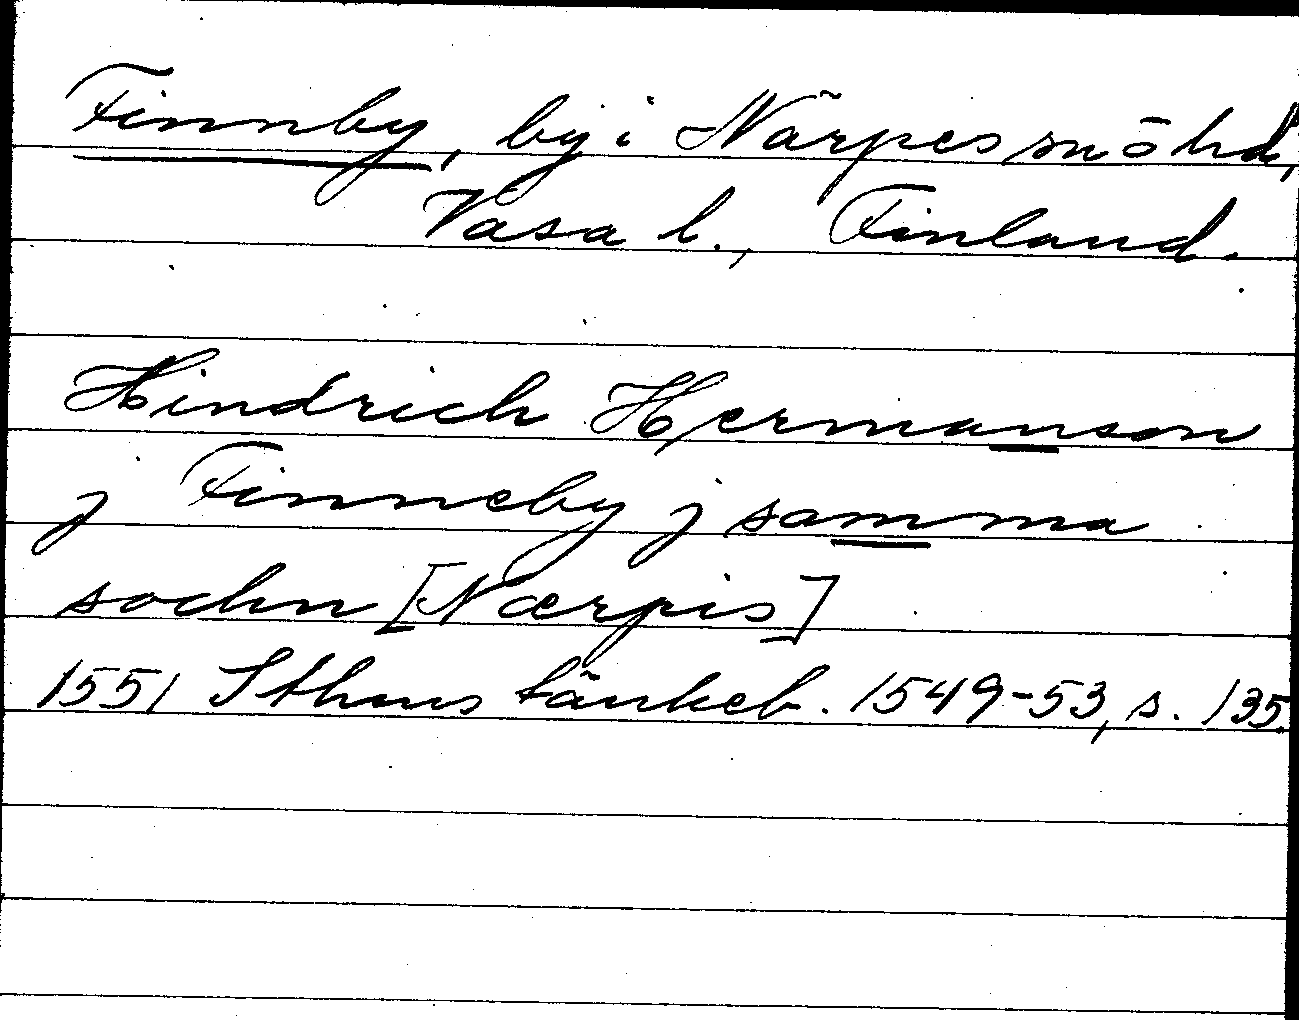 Finnby, by i Närpes sn ö hd,
Vasa l., Finland.
Hindrich Hermanson
j Finneby j samma
sochn [Nærpis]
1551 Sthms tänkeb. 1549-53, s. 135.